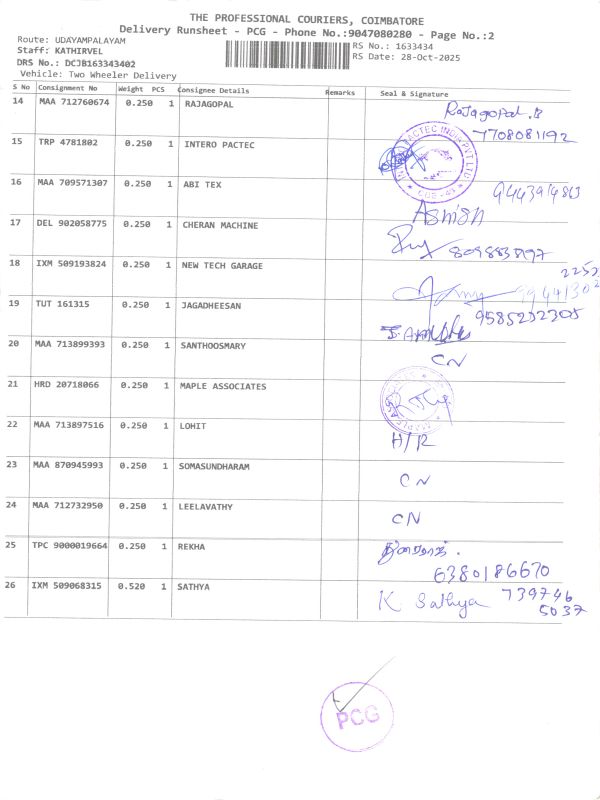 THE PROFESSIONAL COURIERS, COIMBATORE
Delivery Runsheet - PCG - Phone No.:9047080280 - Page No.:2
Route: UDAYAMPALAYAM
RS No.: 1633434
Staff: KATHIRVEL
RS Date: 28-Oct-2025
DRS No.: DCJB163343402
Vehicle: Two Wheeler Delivery
S No Consignment No Weight PCS Consignee Details Remarks Seal & Signature
14 MAA 712760674 0.250 1 RAJAGOPAL Rajagopal.B
7708081192
15 TRP 4781802 0.250 1 INTERO PACTEC
16 MAA 709571307 0.250 1 ABI TEX
Ashish
17 DEL 902058775 0.250 1 CHERAN MACHINE
18 IXM 509193824 0.250 1 NEW TECH GARAGE
19 TUT 161315 0.250 1 JAGADHEESAN 9585252305
20 MAA 713899393 0.250 1 SANTHOOSMARY CN
21 HRD 20718066 0.250 1 MAPLE ASSOCIATES
22 MAA 713897516 0.250 1 LOHIT H/R
23 MAA 870945993 0.250 1 SOMASUNDHARAM CN
24 MAA 712732950 0.250 1 LEELAVATHY CN
25 TPC 9000019664 0.250 1 REKHA
6380186670
26 IXM 509068315 0.520 1 SATHYA K Sathya 739746
5037
PCG